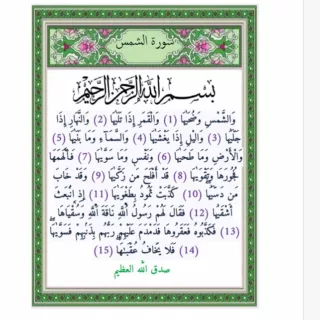 سورة الشمس
بسم الله الرحمن الرحيم
وَالشَّمْسِ وَضُحَيٰهَا (1) وَالْقَمَرِ إِذَا تَلَيٰهَا (2) وَالنَّهَارِ إِذَا
جَلَّيٰهَا (3) وَالَّيْلِ إِذَا يَغْشَيٰهَا (4) وَالسَّمَآءِ وَمَا بَنَيٰهَا (5)
وَالْأَرْضِ وَمَا طَحَيٰهَا (6) وَنَفْسٍ وَمَا سَوَّيٰهَا (7) فَأَلْهَمَهَا
فُجُورَهَا وَتَقْوَيٰهَا (8) قَدْ أَفْلَحَ مَن زَكَّيٰهَا (9) وَقَدْ خَابَ
مَن دَسَّيٰهَا (10) كَذَّبَتْ ثَمُودُ بِطَغْوَيٰهَا (11) إِذِ انۢبَعَثَ
أَشْقَيٰهَا (12) فَقَالَ لَهُمْ رَسُولُ اللَّهِ نَاقَةَ اللَّهِ وَسُقْيَاهَا
(13) فَكَذَّبُوهُ فَعَقَرُوهَا فَدَمْدَمَ عَلَيْهِمْ رَبُّهُم بِذَنۢبِهِمْ فَسَوَّيٰهَا
(14) فَلَا يَخَافُ عُقْبَٰهَا (15)
صدق الله العظيم